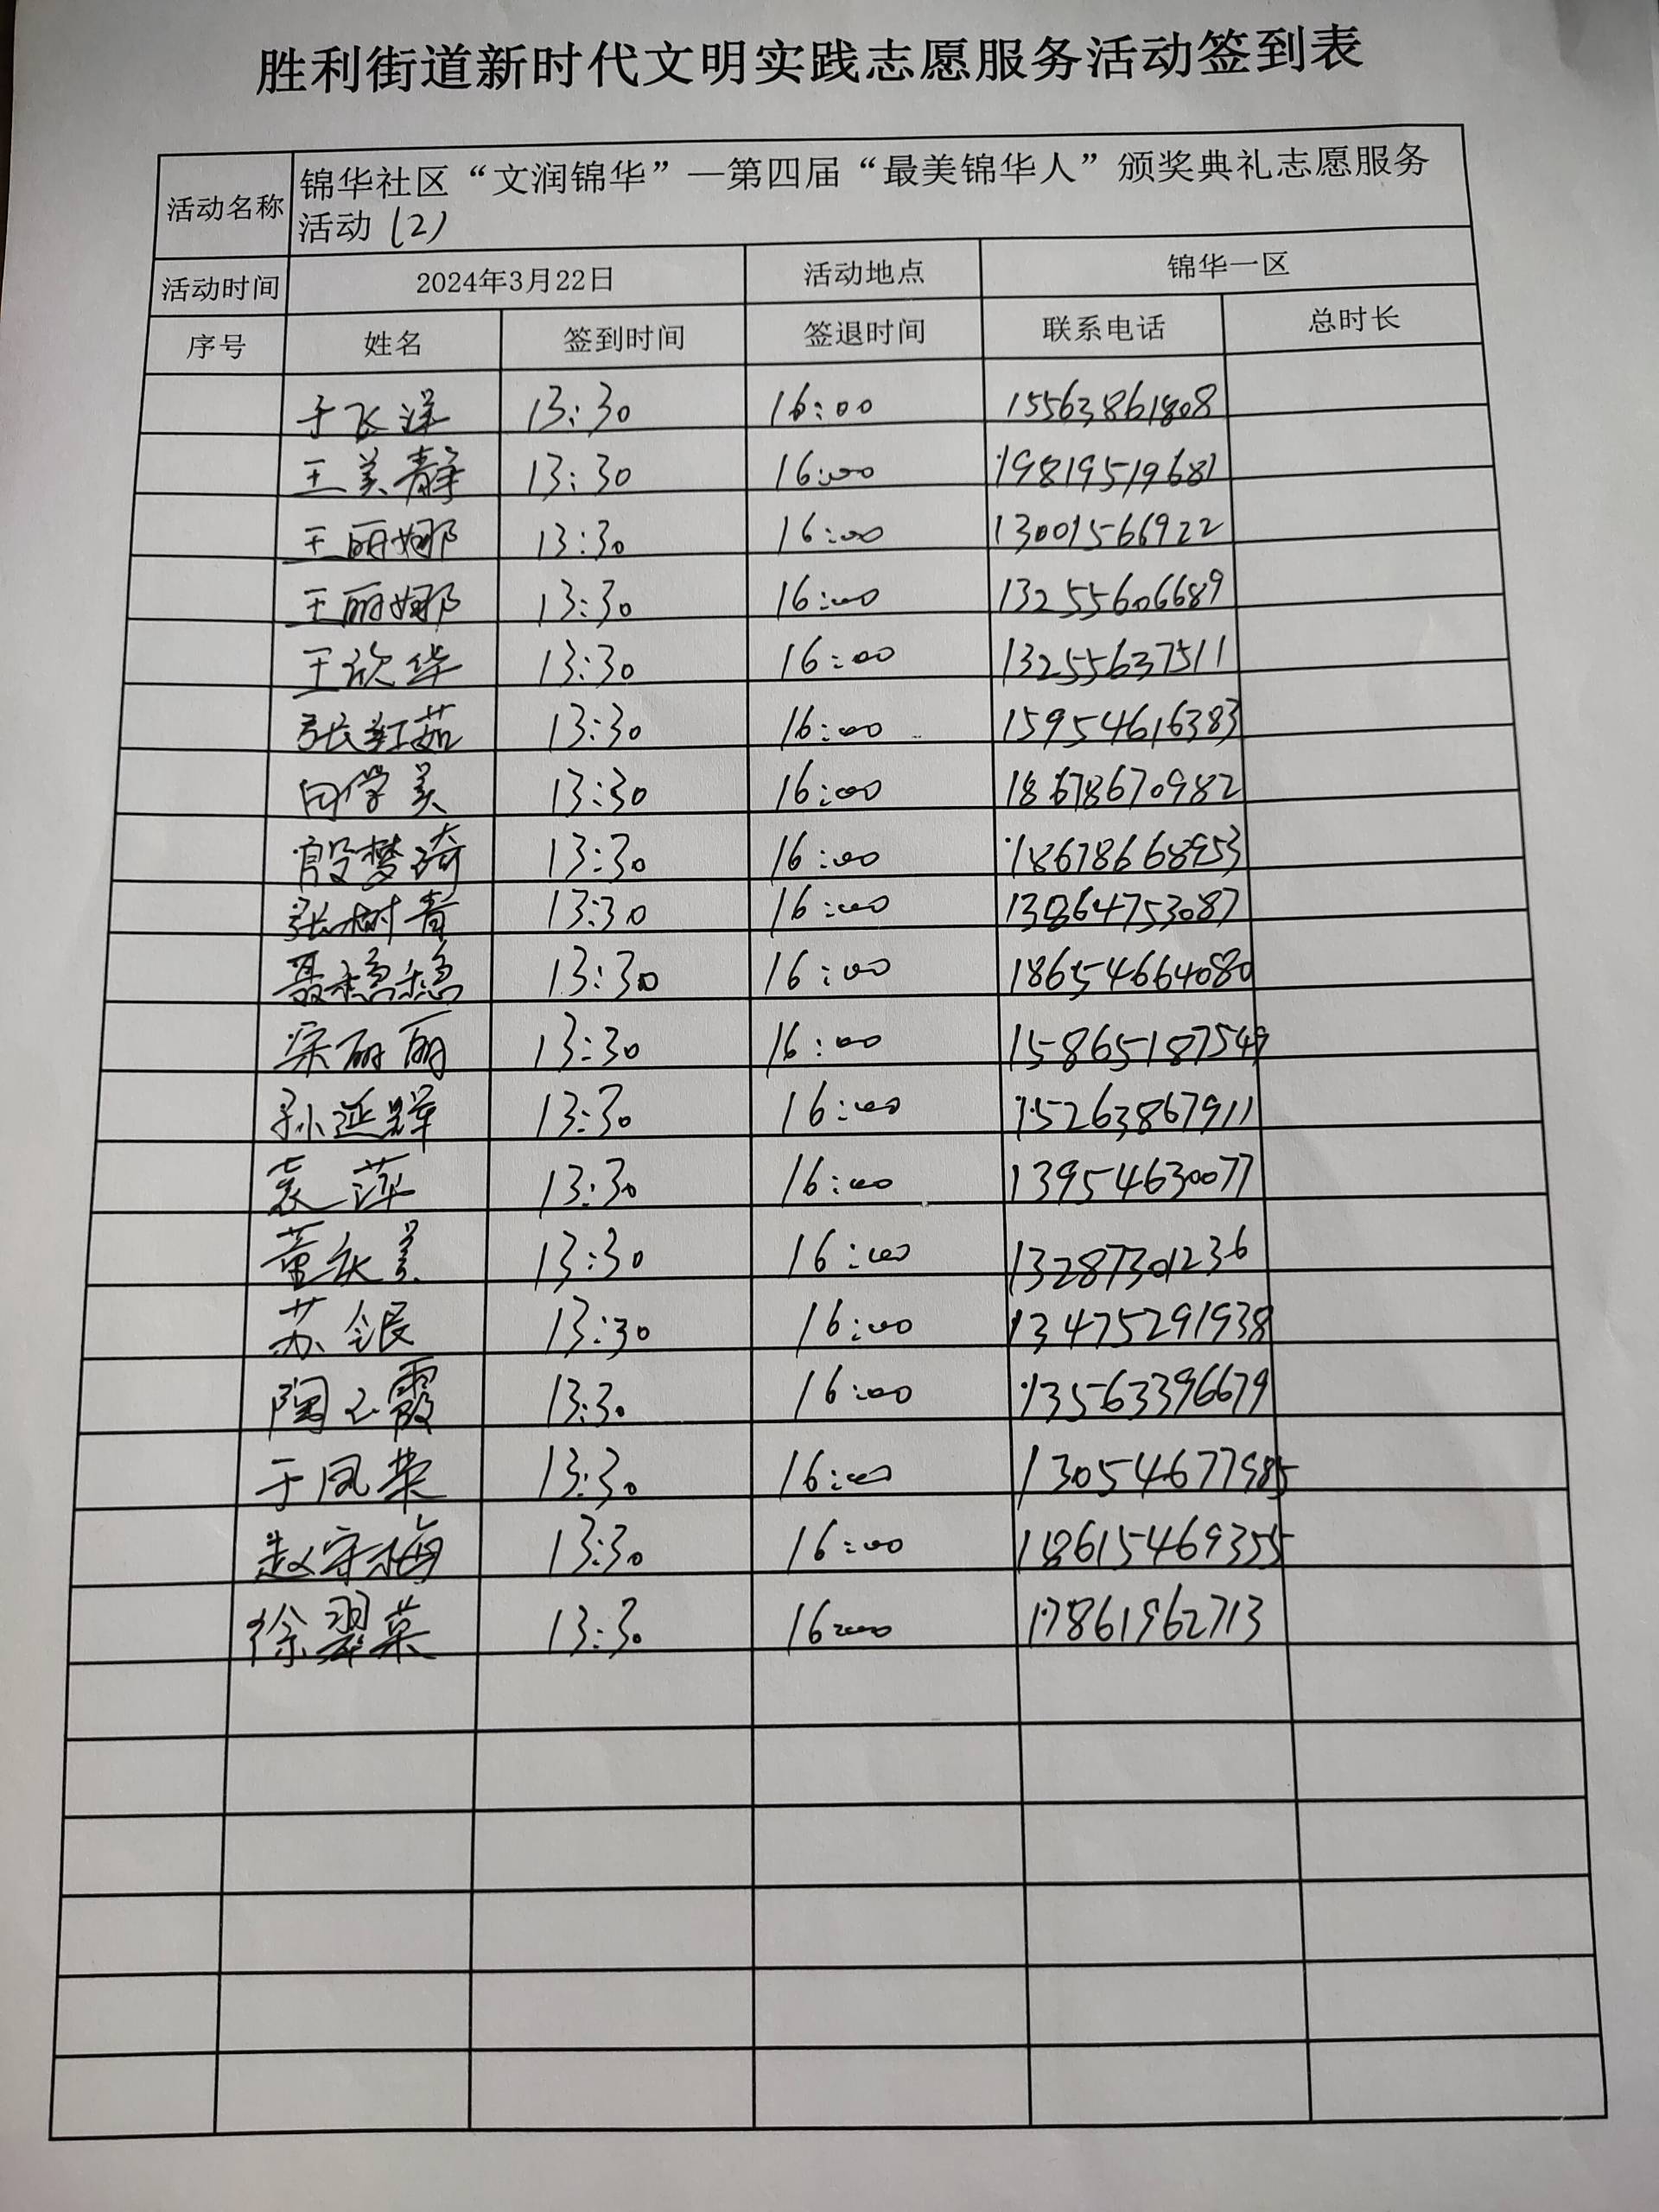 胜利街道新时代文明实践志愿服务活动签到表
活动名称 锦华社区“文润锦华”—第四届“最美锦华人”颁奖典礼志愿服务
活动(2)
活动时间 2024年3月22日 活动地点 锦华一区
序号 姓名 签到时间 签退时间 联系电话 总时长
于飞洋 13:30 16:00 15563861808
王美静 13:30 16:00 19819519681
王丽娜 13:30 16:00 13001566922
王丽娜 13:30 16:00 13255606689
王欣华 13:30 16:00 13255637511
张红茹 13:30 16:00 15954616383
闫学美 13:30 16:00 18678670982
殷梦琦 13:30 16:00 18678668953
张树青 13:30 16:00 13864753087
聂稳稳 13:30 16:00 18654664080
宋丽丽 13:30 16:00 15865187549
孙延辉 13:30 16:00 15263867911
袁萍 13:30 16:00 13954630077
董秋美 13:30 16:00 13287301236
苏银 13:30 16:00 13475291938
陶玉霞 13:30 16:00 13563396679
于凤荣 13:30 16:00 13054677985
赵守梅 13:30 16:00 18615469355
徐翠英 13:30 16:00 17861962713